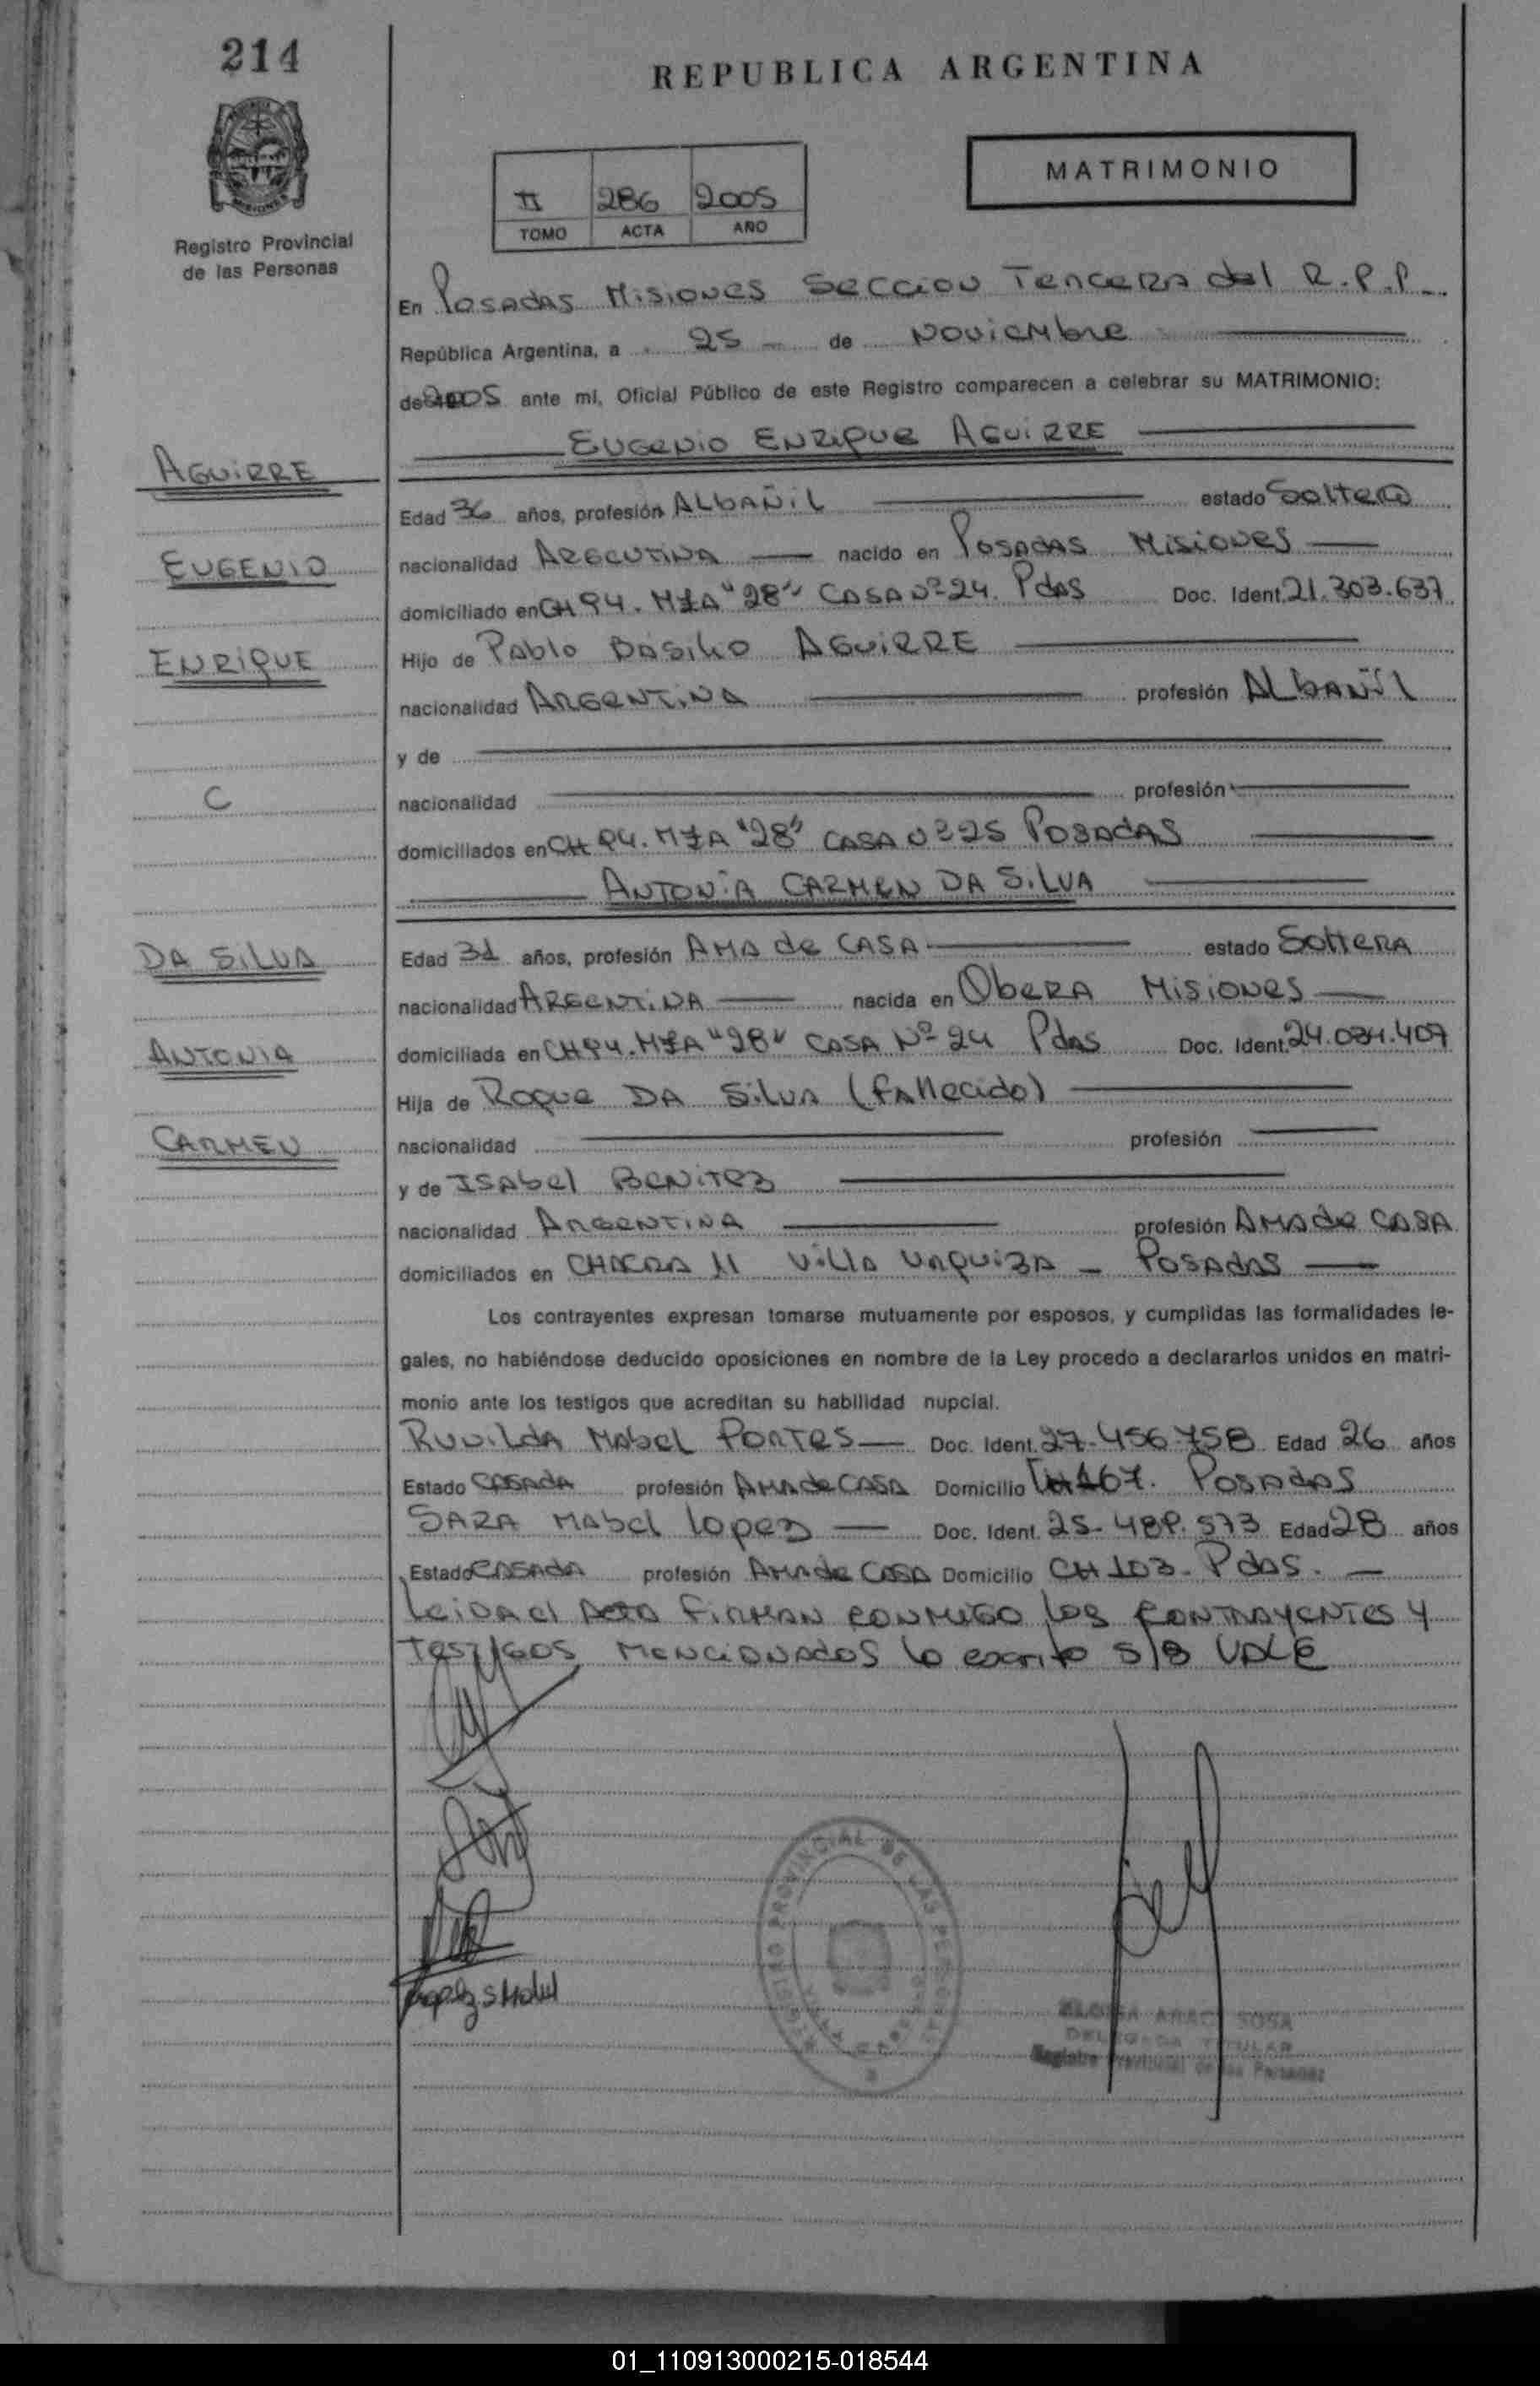 214
REPUBLICA ARGENTINA
MATRIMONIO
II 286 2005
TOMO ACTA AÑO
Registro Provincial
de las Personas
En Posadas Misiones Seccion Tercera del R.P.P.
República Argentina, a 25 de Noviembre
de 2005 ante mí, Oficial Público de este Registro comparecen a celebrar su MATRIMONIO:
EUGENIO ENRIQUE AGUIRRE
AGUIRRE
Edad 36 años, profesión ALbAÑiL estado Soltero
EUGENIO
nacionalidad ARGENTINA nacido en Posadas Misiones
domiciliado en CH 94. MZA "28" CASA Nº 24. Pdas Doc. Ident. 21.303.637
ENRIQUE
Hijo de Pablo Basilio AGUIRRE
nacionalidad ARGENTINA profesión ALbAÑiL
y de
C
nacionalidad profesión
domiciliados en CH 94. MZA "28" CASA Nº 25 POSADAS
ANTONIA CARMEN DA SILVA
DA SILVA
Edad 31 años, profesión AMA de CASA estado SolteRA
nacionalidad ARGENTINA nacida en ObeRA Misiones
ANTONIA
domiciliada en CH 94. MZA "28" CASA Nº 24 Pdas Doc. Ident. 24.084.407
Hija de Roque DA Silva (fallecido)
CARMEN
nacionalidad profesión
y de ISAbel BENITEZ
nacionalidad ARGENTINA profesión AMA de CASA
domiciliados en CHACRA 11 Villa URQUIZA - POSADAS
Los contrayentes expresan tomarse mutuamente por esposos, y cumplidas las formalidades le-
gales, no habiéndose deducido oposiciones en nombre de la Ley procedo a declararlos unidos en matri-
monio ante los testigos que acreditan su habilidad nupcial.
RuvildA Mabel PORTES Doc. Ident. 27.456.758 Edad 26 años
Estado CASADA profesión AMA de CASA Domicilio CH 167. POSADAS
SARA Mabel lopez Doc. Ident. 25.489.573 Edad 28 años
Estado CASADA profesión AMA de CASA Domicilio CH 103. Pdas.
leida el Acta FIRMAN CONMIGO los CONTRAYENTES y
TESTIGOS MENCIONADOS lo escrito S/B VALE
REGISTRO PROVINCIAL DE LAS PERSONAS
Lopez S Mabel
SOSA
DELEGADA TITULAR
Registro Provincial de las Personas
01_110913000215-018544